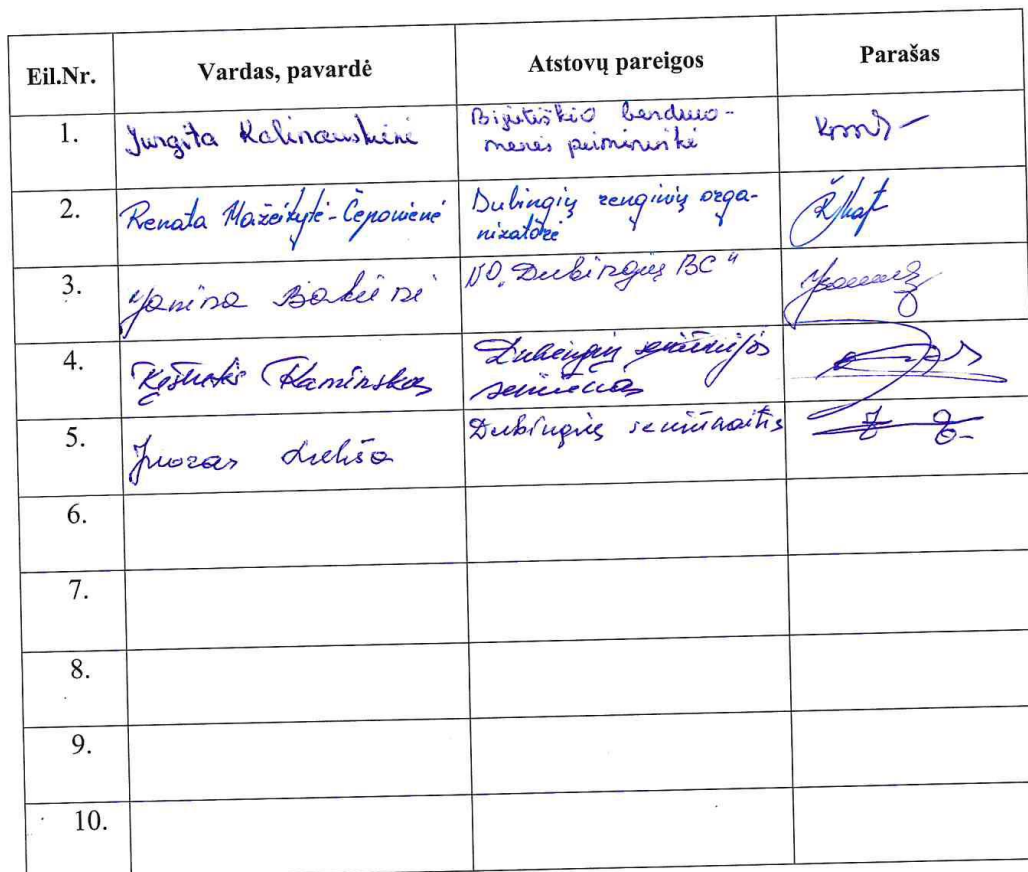 Eil.Nr. Vardas, pavardė Atstovų pareigos Parašas
1. Jurgita Kalinauskienė Bijutiškio bendruo-
menės pirmininkė
2. Renata Mažeikytė-Čeponienė Dubingių renginių orga-
nizatorė
3. Janina VO „Dubingių BC"
4. Kęstutis Kaminskas Dubingių seniūnijos
seniūnas
5. Juozas Dubingių seniūnaitis
6.
7.
8.
9.
10.